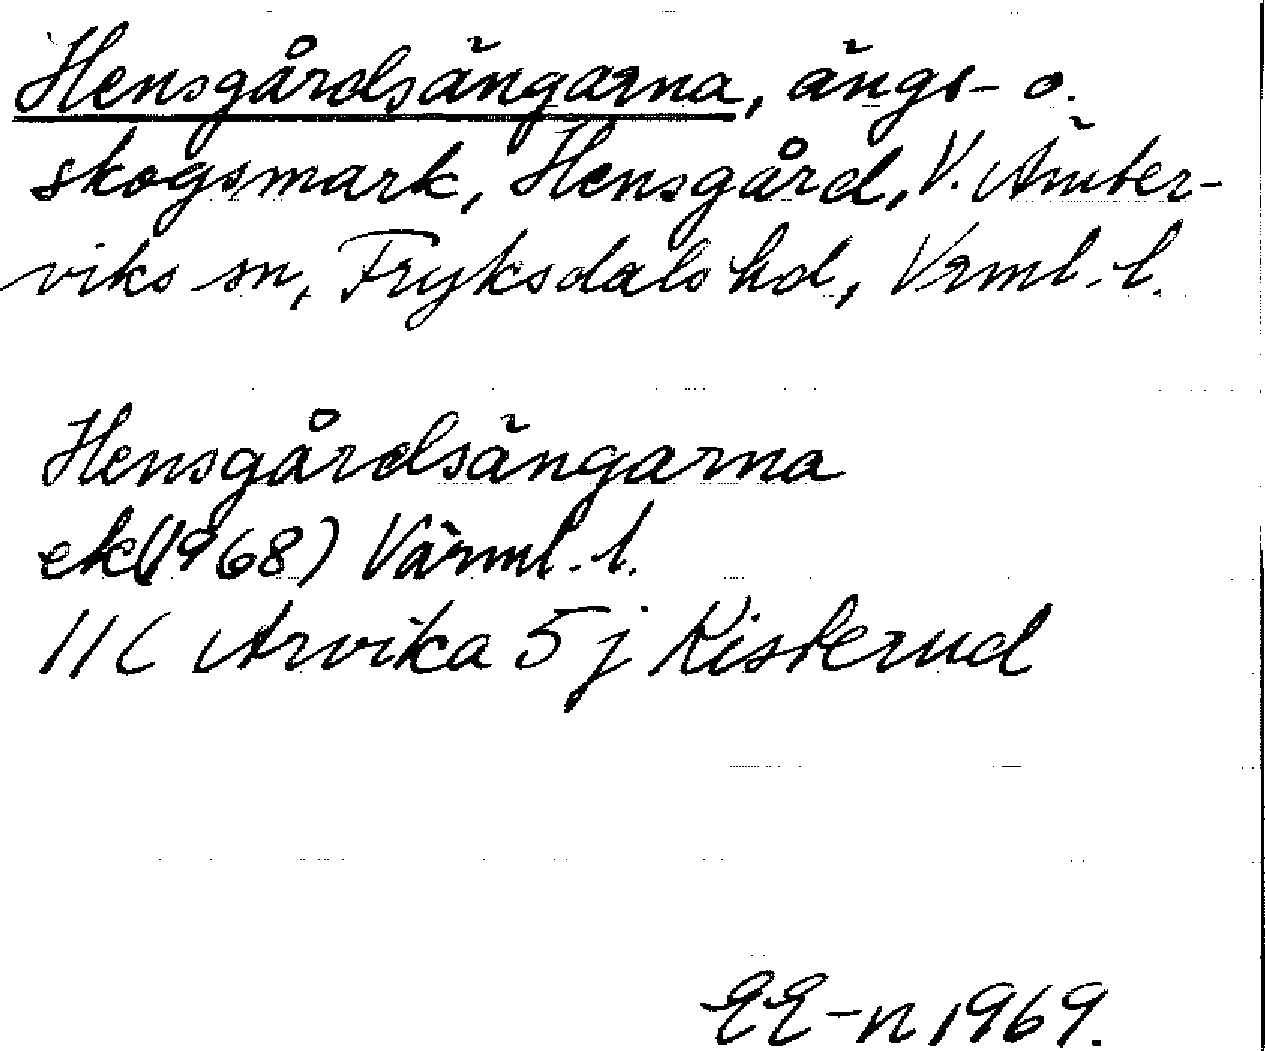 Hensgårdsängarna, ängs- o.
skogsmark, Hensgård, V. Ämter-
viks sn, Fryksdals hd, Vrml. l.
Hensgårdsängarna
ek (1968) Värml. l.
11C Arvika 5j Kisterud
EE-n 1969.